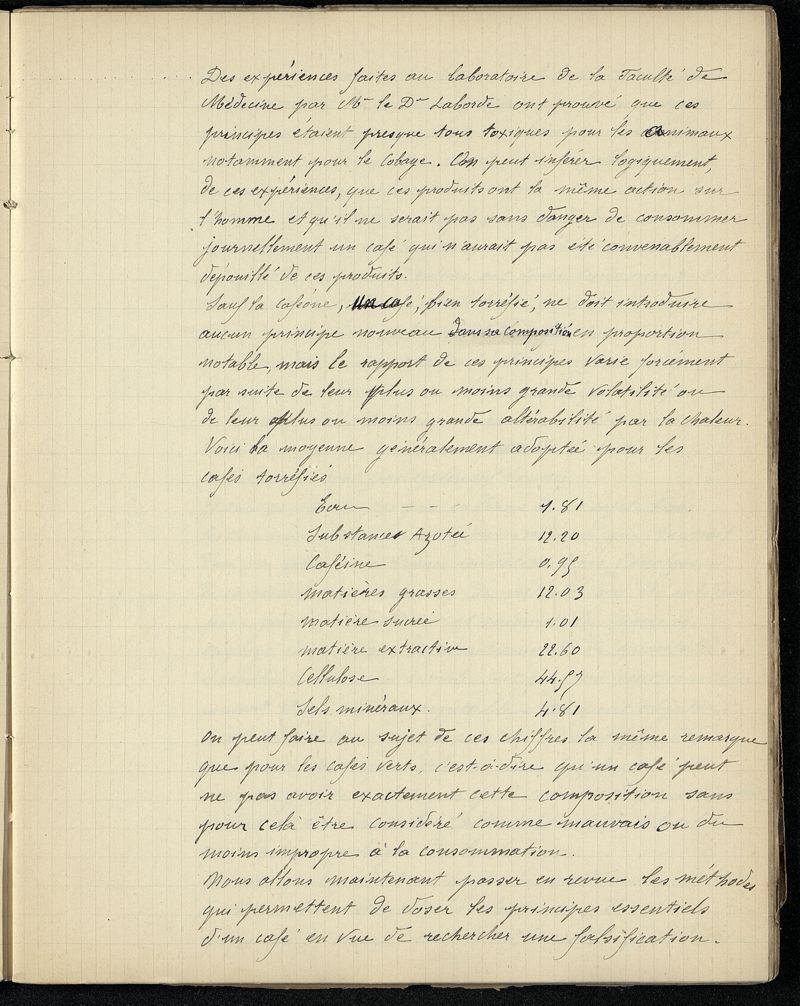 Des expériences faites au laboratoire de la Faculté de
Médecine par Mr le Dr Laborde ont prouvé que ces
principes étaient presque tous toxiques pour les animaux
notamment pour le Cobaye. On peut inférer logiquement,
de ces expériences, que ces produits ont la même action sur
l'homme et qu'il ne serait pas sans danger de consommer
journellement un café qui n'aurait pas été convenablement
dépouillé de ces produits.
Sauf la caféone, un café, bien torréfié, ne doit introduire
aucun principe nouveau dans sa composition en proportion
notable, mais le rapport de ces principes varie forcément
par suite de leur plus ou moins grande volatilité ou
de leur plus ou moins grande altérabilité par la chaleur.
Voici la moyenne généralement adoptée pour les
cafés torréfiés
Eau - - 1.81
Substances Azotée 12.20
Caféine 0.95
matières grasses 12.03
matière sucrée 1.01
matière extractive 22.60
Cellulose 44.57
Sels minéraux. 4.81
On peut faire au sujet de ces chiffres la même remarque
que pour les cafés verts, c'est-à-dire qu'un café peut
ne pas avoir exactement cette composition sans
pour celà être considéré comme mauvais ou du
moins impropre à la consommation.
Nous allons maintenant passer en revue les méthodes
qui permettent de doser les principes essentiels
d'un café en vue de rechercher une falsification.